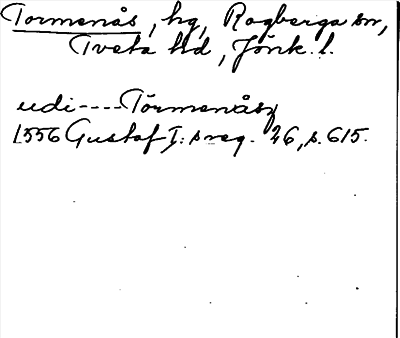 Tormenås, hg, Rogberga sn,
Tveta hd, Jönk. l.
udi----Törmenåsz
1556 Gustaf I:s reg. 26, s. 615.